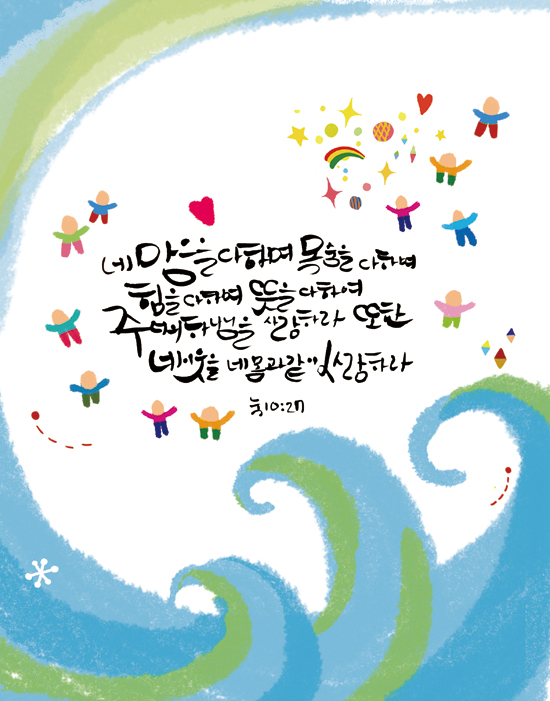 네 마음을 다하며 목숨을 다하며
힘을 다하며 뜻을 다하여
주 너의 하나님을 사랑하라 또한
네 이웃을 네 몸과 같이 사랑하라
눅10:27